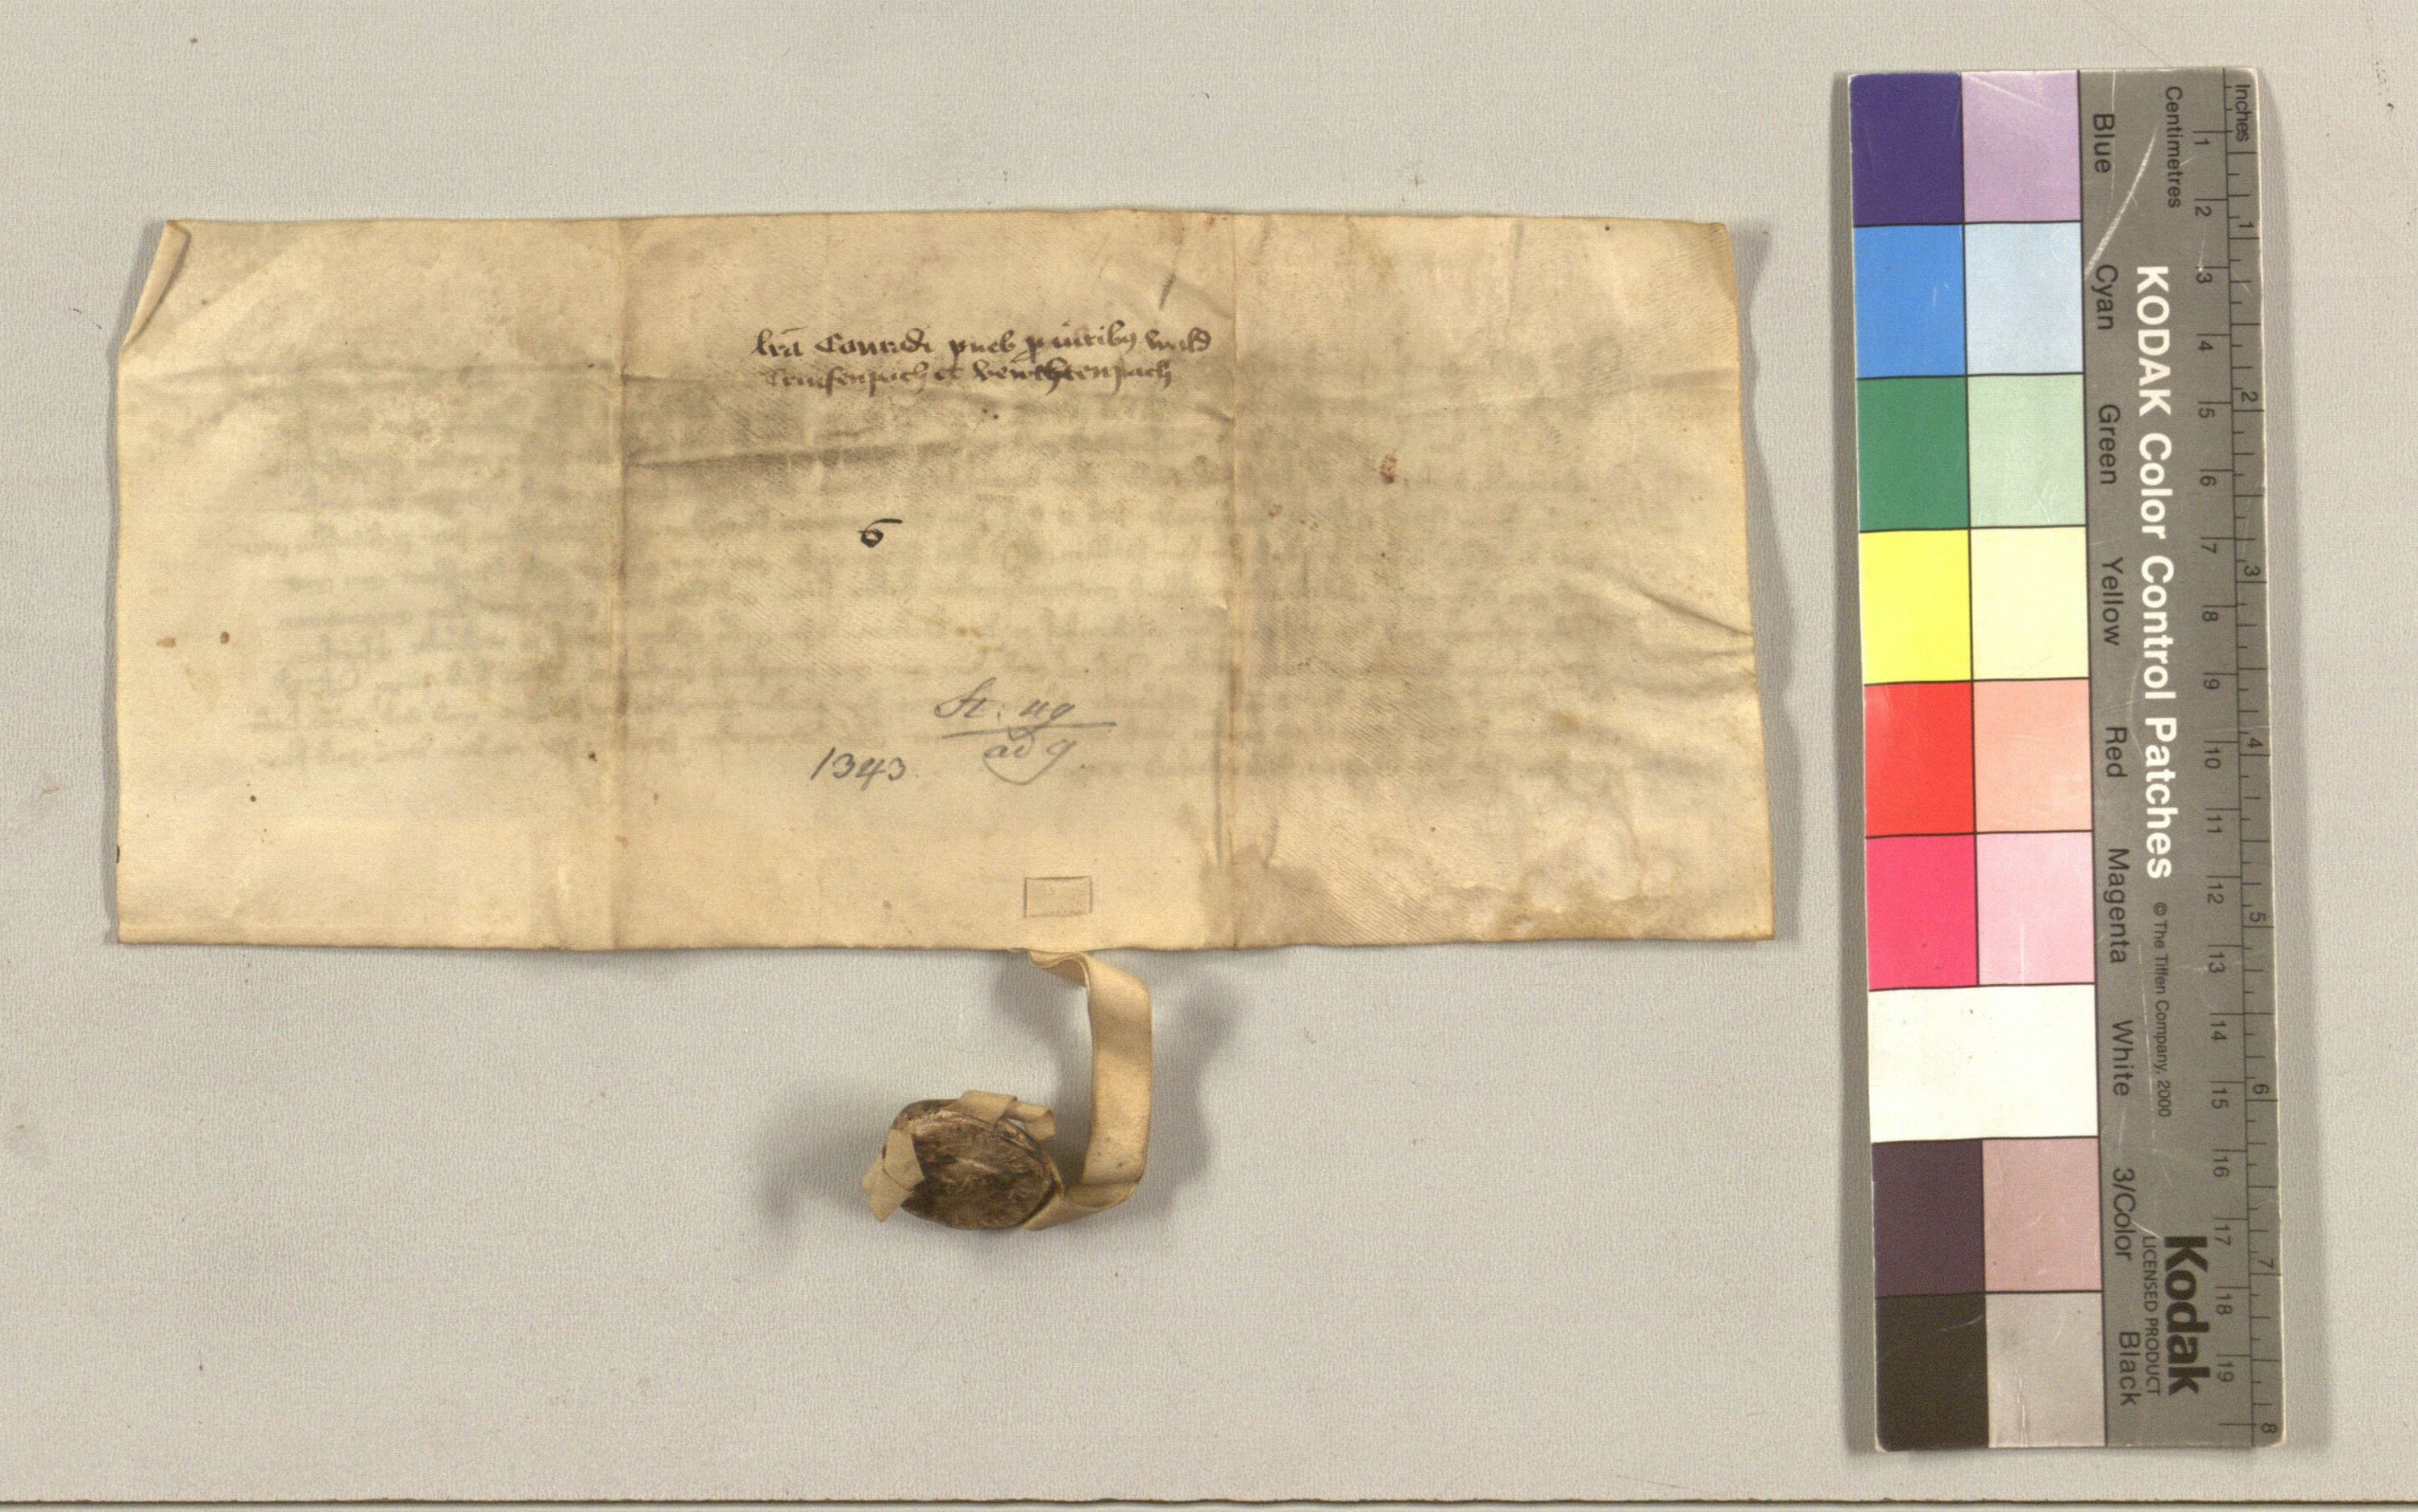 lrā Conradi pueb
et
6
St: ug
ad 9
1343
Inches
Centimetres
KODAK Color Control Patches © The Tiffen Company, 2000
Kodak
LICENSED PRODUCT
Blue Cyan Green Yellow Red Magenta White 3/Color Black
1 2 3 4 5 6 7 8 9 10 11 12 13 14 15 16 17 18 19
1 2 3 4 5 6 7 8